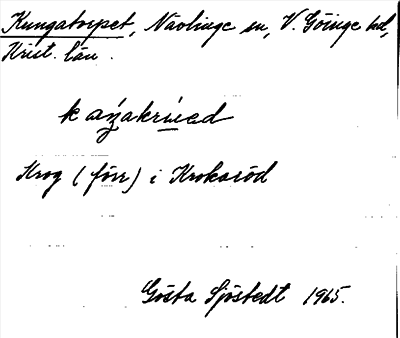 Kungatorpet, Nävlinge sn, V. Göinge hd,
Krist. län.
Krog (förr) i Krokaröd
Gösta Sjöstedt 1965.